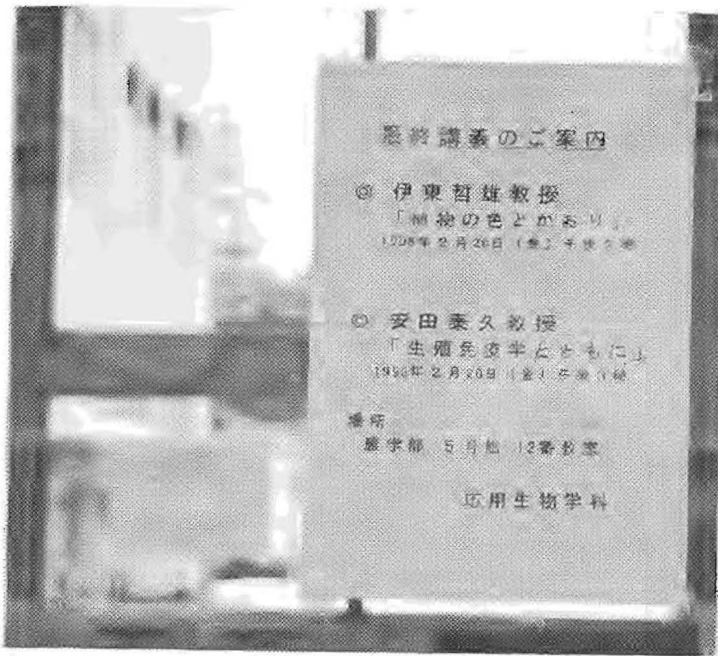 最終講義のご案内
◎ 伊東哲雄教授
「植物の色とかおり」
1998年2月20日(金)午後2時
◎ 安田泰久教授
「生殖免疫学とともに」
1998年2月20日(金)午後3時
場所
農学部 5号館 12番教室
応用生物学科